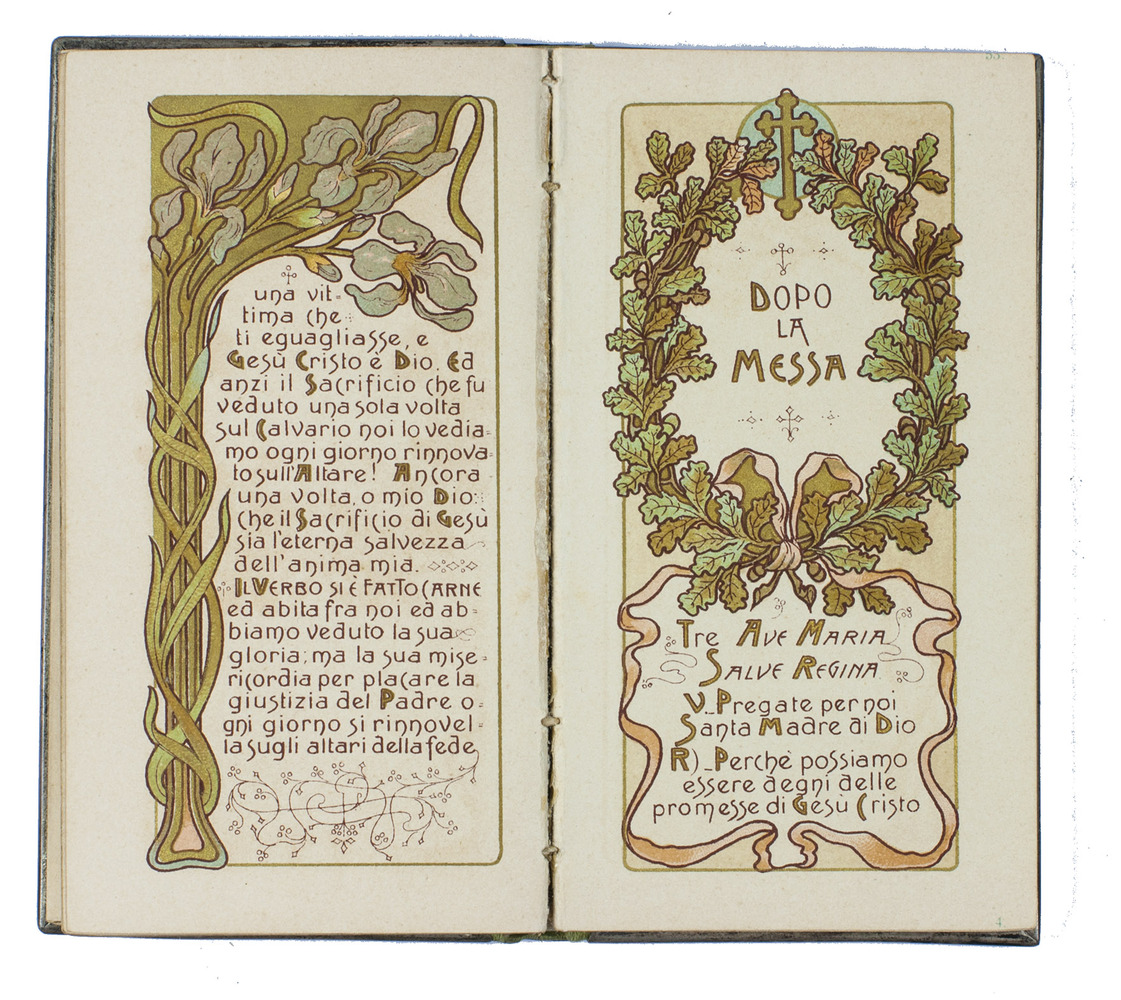 una vit=
tima che
ti eguagliasse, e
Gesù Cristo è Dio. Ed
anzi il Sacrificio che fu
veduto una sola volta
sul Calvario noi lo vedia=
mo ogni giorno rinnova=
to sull'Altare! Ancora
una volta, o mio Dio:
che il Sacrificio di Gesù
sia l'eterna salvezza
dell'anima mia.
IL VERBO SI È FATTO CARNE
ed abita fra noi ed ab=
biamo veduto la sua
gloria; ma la sua mise=
ricordia per placare la
giustizia del Padre o=
gni giorno si rinnovel=
la sugli altari della fede
33.
DOPO
LA
MESSA
Tre AVE MARIA
SALVE REGINA
V_Pregate per noi
Santa Madre di Dio
R)_Perchè possiamo
essere degni delle
promesse di Gesù Cristo
4